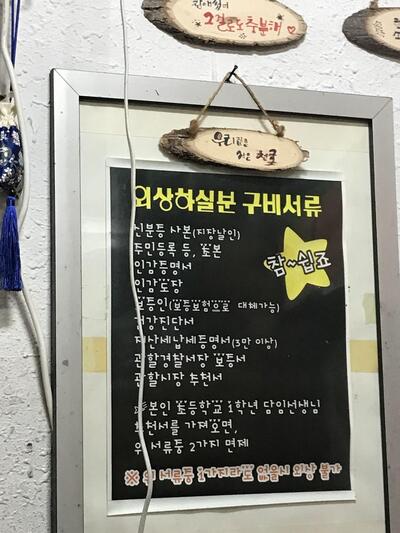 그걸로도 충분해
외상하실분 구비서류
신분증 사본(지장날인)
주민등록 등, 초본
인감증명서
인감도장
보증인(보증보험으로 대체가능)
건강진단서
재산세납세증명서(3만 이상)
관할경찰서장 보증서
관할시장 추천서
참~쉽죠
본인 초등학교 1학년 담임선생님
추천서를 가져오면,
위 서류중 2가지 면제
※ 위 서류중 1가지라도 없을시 외상 불가